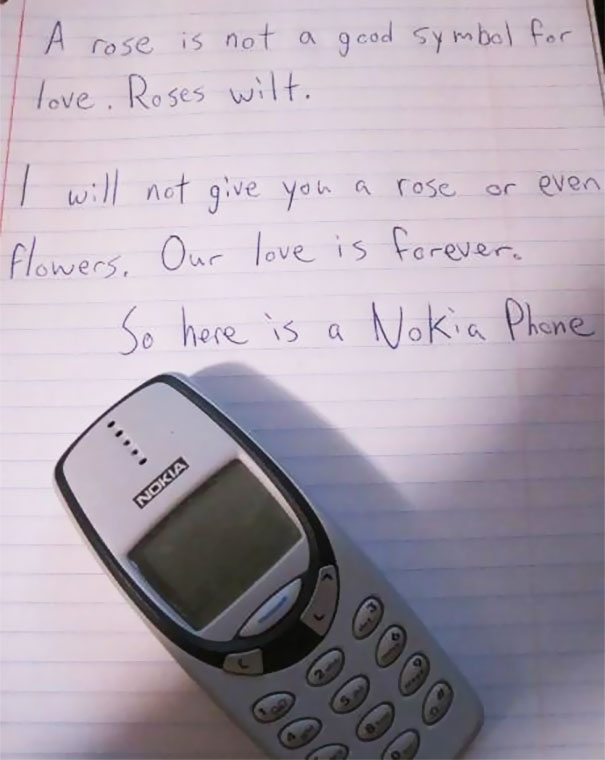 A rose is not a good symbol for
love. Roses wilt.
I will not give you a rose or even
flowers. Our love is forever.
So here is a Nokia Phone
NOKIA
C
1
2 abc
3
4
5
6
8
9